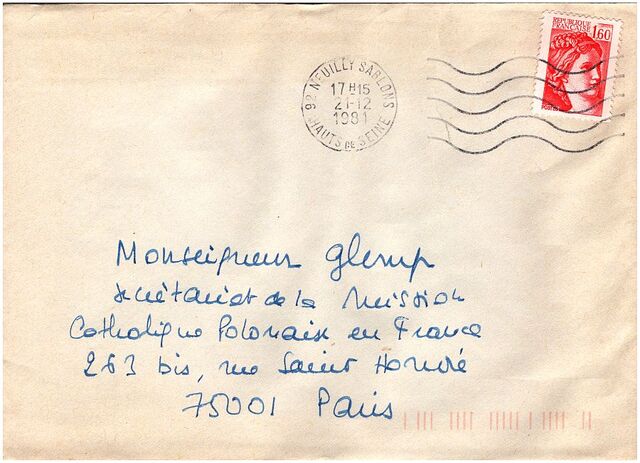 REPUBLIQUE
FRANCAISE 1,60
92 NEUILLY SABLONS
17H15
21-12
1981
HAUTS DE SEINE
Monseigneur Glemp
Secrétariat de la Mission
Catholique Polonaise en France
263 bis, rue Saint Honoré
75001 Paris